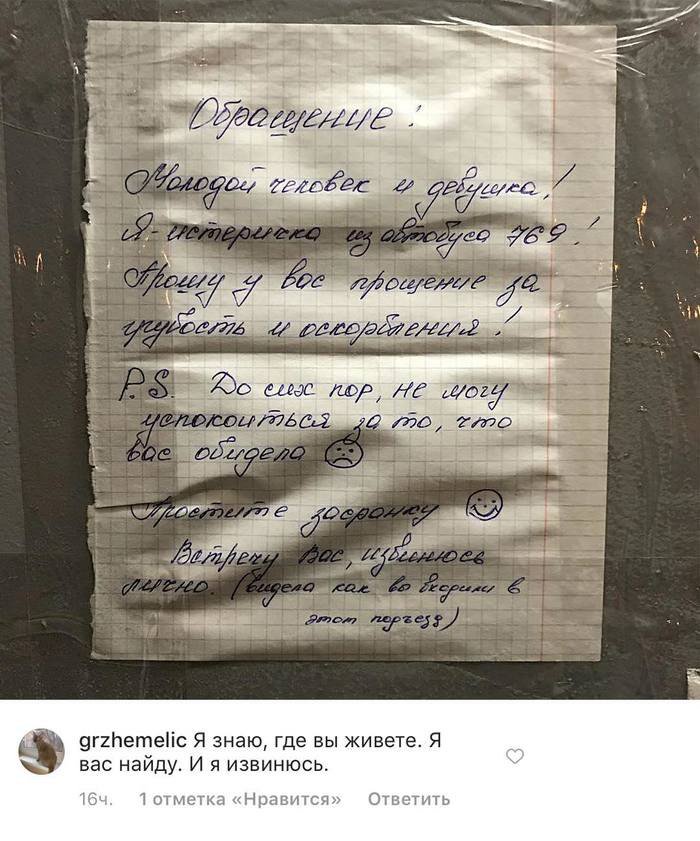 Обращение:
Молодой человек и девушка!
Я - истеричка из автобуса 769!
Прошу у вас прощение за
грубость и оскорбления!
P.S. До сих пор, не могу
успокоиться за то, что
вас обидела
Простите засранку
Встречу вас, извинюсь
лично. (видела как вы входили в
этот подъезд)
grzhemelic Я знаю, где вы живете. Я
вас найду. И я извинюсь.
16ч. 1 отметка «Нравится» Ответить